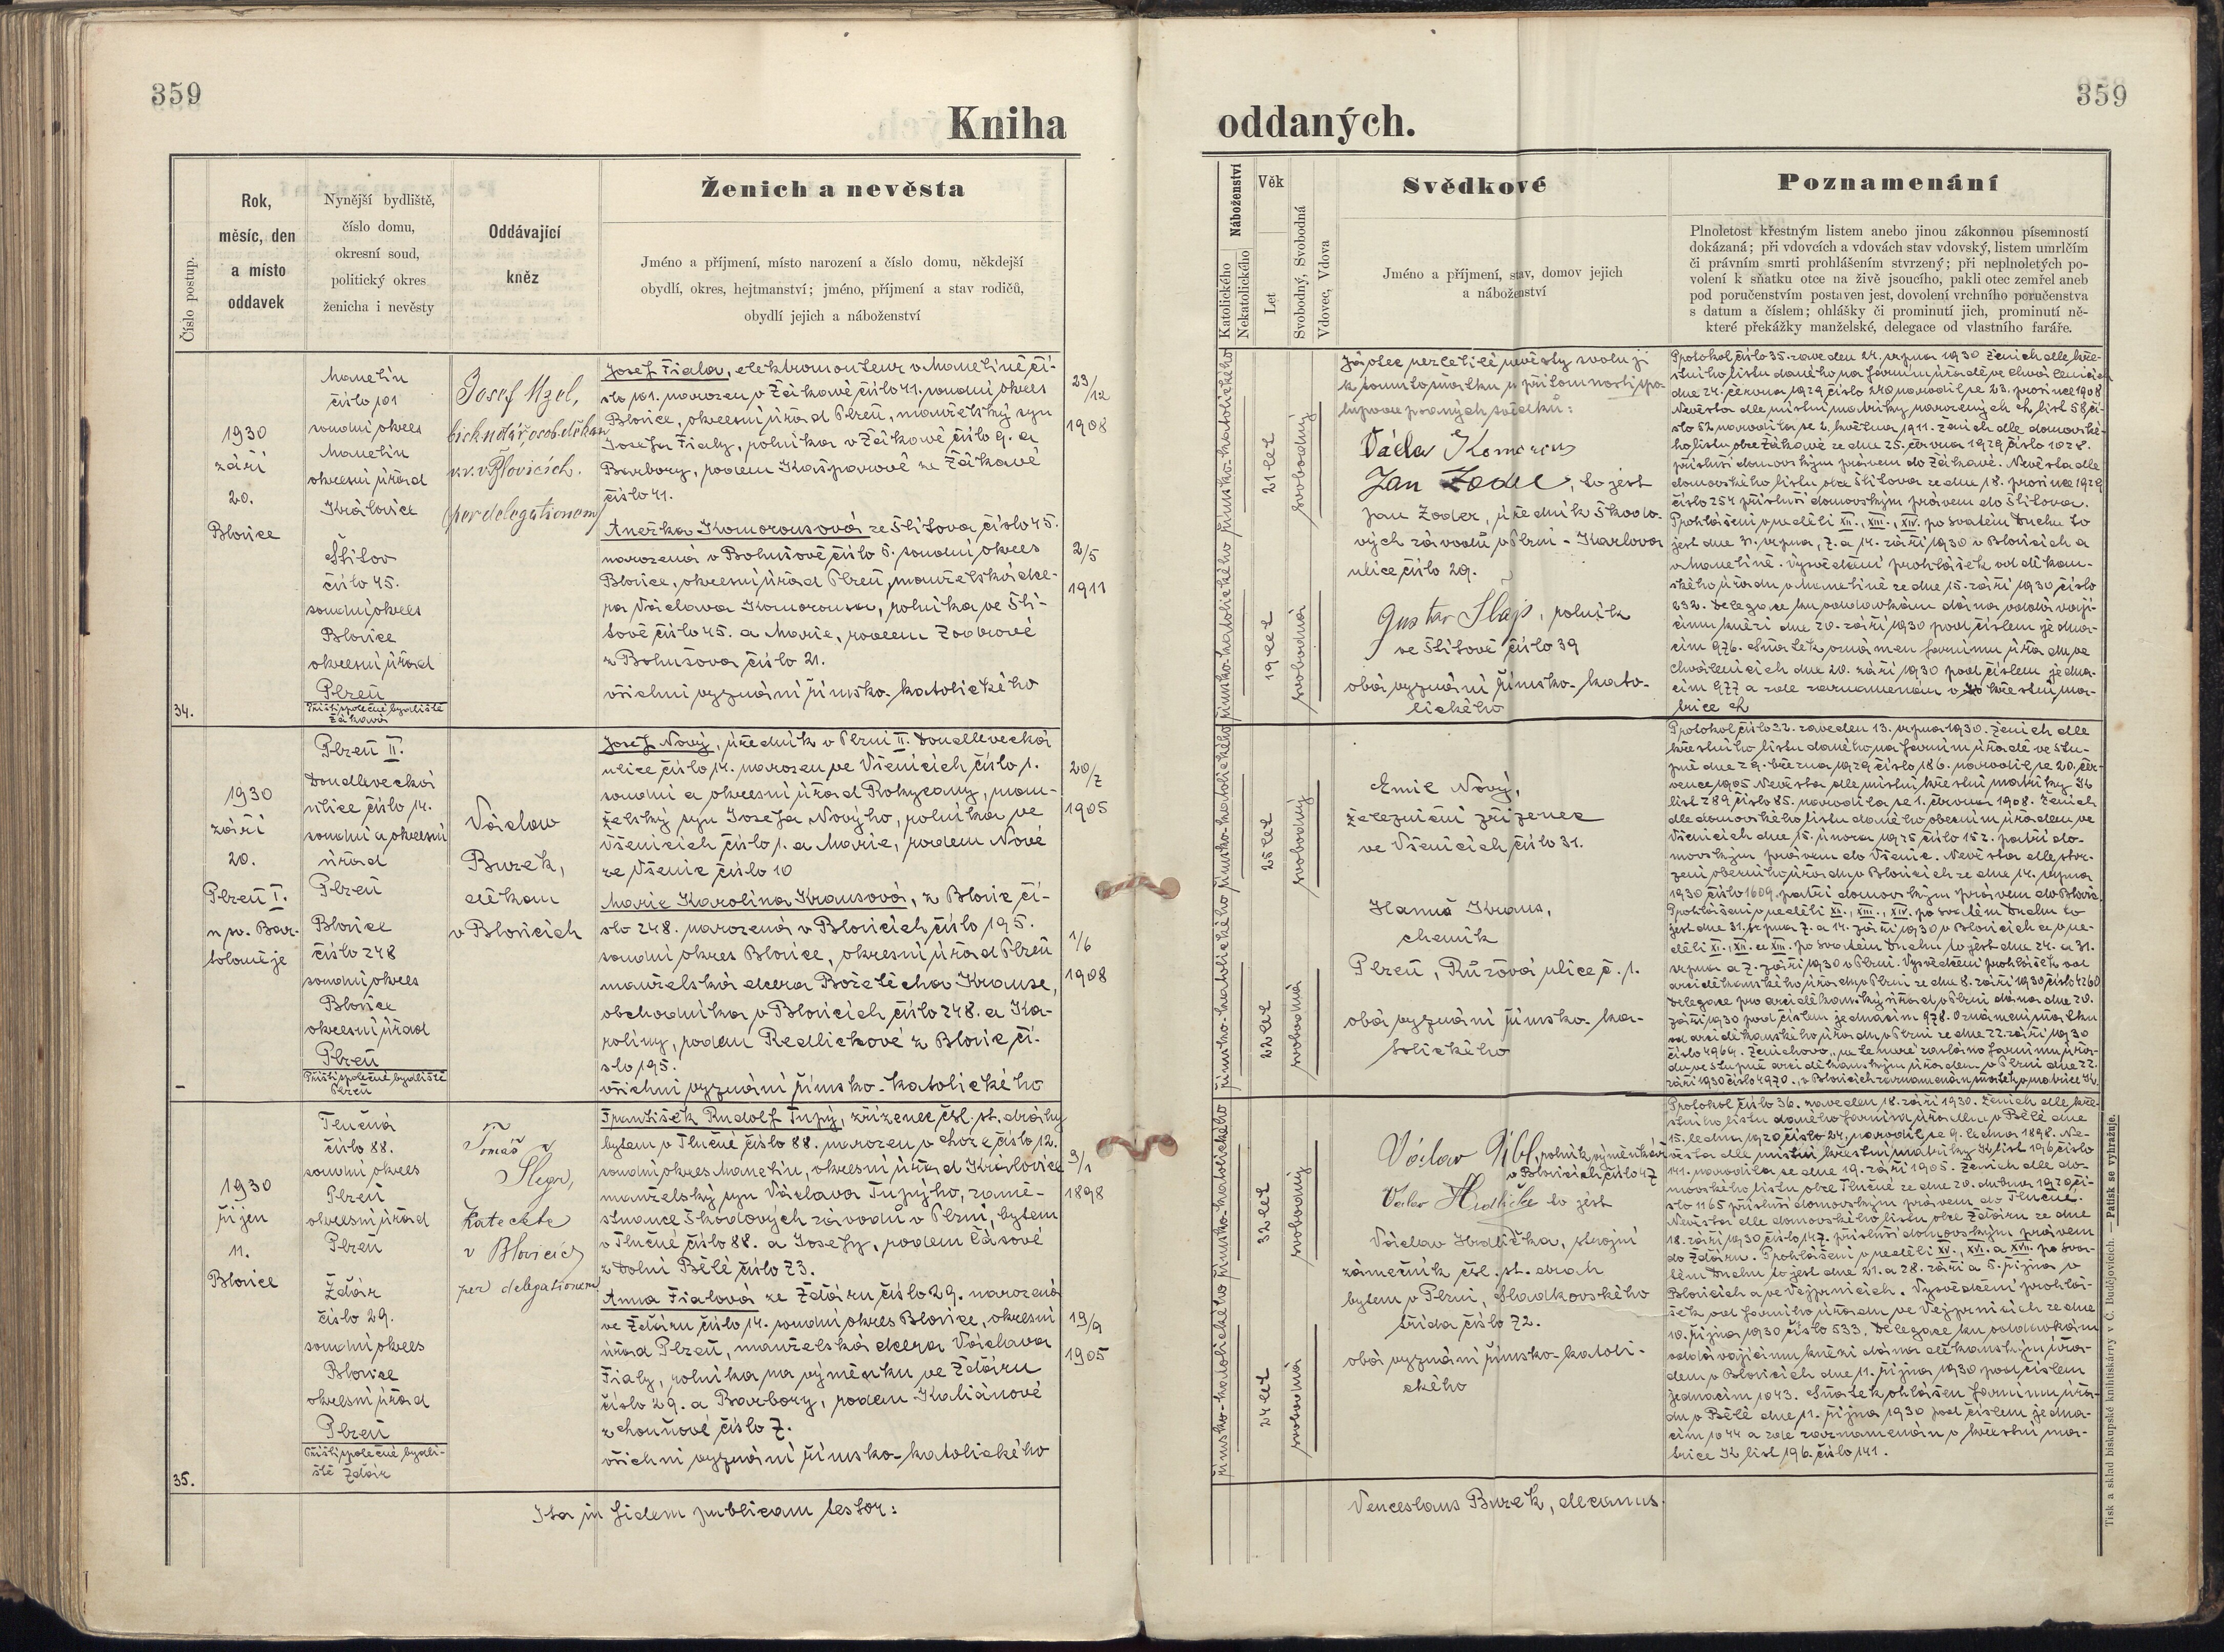 359
359
Kniha
oddaných.
Číslo postup.
Rok,
měsíc, den
a místo
oddavek
Nynější bydliště,
číslo domu,
okresní soud,
politický okres
ženicha i nevěsty
Oddávající
kněz
Ženich a nevěsta
Jméno a příjmení, místo narození a číslo domu, někdejší
obydlí, okres, hejtmanství; jméno, příjmení a stav rodičů,
obydlí jejich a náboženství
Náboženství
Katolického
Nekatolického
Věk
Let
Svobodný, Svobodná
Vdovec, Vdova
Svědkové
Jméno a příjmení, stav, domov jejich
a náboženství
Poznamenání
Plnoletost křestným listem anebo jinou zákonnou písemností
dokázaná; při vdovcích a vdovách stav vdovský, listem umrlčím
či právním smrti prohlášením stvrzený; při neplnoletých po-
volení k sňatku otce na živě jsoucího, pakli otec zemřel aneb
pod poručenstvím postaven jest, dovolení vrchního poručenstva
s datum a číslem; ohlášky či prominutí jich, prominutí ně-
které překážky manželské, delegace od vlastního faráře.
34.
1930
září
20.
Blovice
Manetín
číslo 101
soudní okres
Manetín
okresní úřad
Kralovice
Štítov
číslo 45.
soudní okres
Blovice
okresní úřad
Plzeň
Příští společné bydliště
Žákavá
Josef
v. v. v Blovicích.
(per delegationem)
Josef Fiala, elektromonteur v Manetíně čí-
slo 101. narozen v Žákavě číslo 41. soudní okres
Blovice, okresní úřad Plzeň, manželský syn
Josefa Fialy, rolníka v Žákavě číslo 9. a
Barbory, rodem Kašparové ze Žákavé
číslo 41.
Anežka Komorousová ze Štítova číslo 45.
narozená v Bohušově číslo 5. soudní okres
Blovice, okresní úřad Plzeň, manželská dce-
ra Václava Komorousa, rolníka ve Ští-
tově číslo 45. a Marie, rodem Zoubrové
z Bohušova číslo 21.
všichni vyznání římsko-katolického
23/12
1908
2/5
1911
římsko-katolického
římsko-katolického
21 let
19 let
svobodný
svobodná
Já otec nezletilé nevěsty svoluji
k tomuto sňatku u přítomnosti spo-
lupodepsaných svědků:
Jan Zoder, to jest
Jan Zoder, úředník Škodo-
vých závodů v Plzni - Karlova
ulice číslo 29.
Gustav Šlajs, rolník
ve Štítově číslo 39
obá vyznání římsko-kato-
lického
Protokol číslo 35. zaveden 24. srpna 1930 Ženich dle kře-
stního listu daného na farním úřadě ve Chválenicích
dne 24. června 1929 číslo 240 narodil se 23. prosince 1908
Nevěsta dle místní matriky narozených Ch, list 58, čí-
slo 52 narodila se 2. května 1911. Ženich dle domovské-
ho listu obce Žákavé ze dne 25. června 1929 číslo 1028.
přísluší domovským právem do Žákavé. Nevěsta dle
domovského listu obce Štítova ze dne 18. prosince 1929
číslo 254 přísluší domovským právem do Štítova.
Prohlášeni v neděli XII., XIII., XIV. po svatém Duchu to
jest dne 31. srpna, 7. a 14. září 1930 v Blovicích a
v Manetíně. Vysvědčení prohlášek od děkan-
ského úřadu v Manetíně ze dne 15. září 1930 číslo
232. Delegace ku oddavkám dána oddávají-
címu knězi dne 20. září 1930 pod číslem jedna-
cím 976. Sňatek oznámen farnímu úřadu ve
Chválenicích dne 20. září 1930 pod číslem jedna-
cím 977 a zde zaznamenán v křestní ma-
trice Ch
–
1930
září
20.
Plzeň I.
u sv. Bar-
toloměje
Plzeň II.
Doudlevecká
ulice číslo 14.
soudní a okresní
úřad
Plzeň
Blovice
číslo 248
soudní okres
Blovice
okresní úřad
Plzeň
Příští společné bydliště
Plzeň
Václav
Burek,
děkan
v Blovicích
Josef Nový, úředník v Plzni II. Doudlevecká
ulice číslo 14. narozen ve Všenicích číslo 1.
soudní a okresní úřad Rokycany, man-
želský syn Josefa Nového, rolníka ve
Všenicích číslo 1. a Marie, rodem Nové
ze Všenic číslo 10
Marie Karolina Krausová, z Blovic čí-
slo 248. narozená v Blovicích číslo 195.
soudní okres Blovice, okresní úřad Plzeň
manželská dcera Božetěcha Krause,
obchodníka v Blovicích číslo 248. a Ka-
roliny, rodem Redličkové z Blovic čí-
slo 195.
všichni vyznání římsko-katolického
20/7
1905
1/6
1908
římsko-katolického
římsko-katolického
25 let
22 let
svobodný
svobodná
Emil Nový,
železniční zřízenec
ve Všenicích číslo 31.
Hanuš Kraus,
chemik
Plzeň, Růžová ulice č. 1.
obá vyznání římsko-ka-
tolického
Protokol číslo 32. zaveden 13. srpna 1930. Ženich dle
křestního listu daného na farním úřadě ve Stu-
pně dne 29. března 1929 číslo 186. narodil se 20. čer-
vence 1905 Nevěsta dle místní křestní matriky K
list 289 číslo 85. narodila se 1. června 1908. Ženich
dle domovského listu daného obecním úřadem ve
Všenicích dne 15. února 1925 číslo 152. patří do-
movským právem do Všenic. Nevěsta dle stvr-
zení obecního úřadu v Blovicích ze dne 14. srpna
1930 číslo 1609. patří domovským právem do Blovic.
Prohlášeni v neděli XII., XIII., XIV. po svatém Duchu to
jest dne 31. srpna 7. a 14. září 1930 v Blovicích a v ne-
děli XI., XII. a XIII. po svatém Duchu to jest dne 24. a 31.
srpna a 7. září 1930 v Plzni. Vysvědčení prohlášek od
arciděkanského úřadu v Plzni ze dne 8. září 1930 číslo 4260
Delegace pro arciděkanský úřad v Plzni dána dne 20.
září 1930 pod číslem jednacím 978. Oznámení sňatku
od arciděkanského úřadu v Plzni ze dne 22. září 1930
číslo 4964. Ženichovo „ne temere" zasláno farnímu úřa-
du ve Stupně arciděkanským úřadem v Plzni dne 22.
září 1930 číslo 4970., v Blovicích zaznamenán sňatek v matrice K.
35.
1930
říjen
11.
Blovice
Tlučná
číslo 88.
soudní okres
Plzeň
okresní úřad
Plzeň
Ždár
číslo 29.
soudní okres
Blovice
okresní úřad
Plzeň
Příští společné bydli-
ště Ždár
Tomáš
Šlegr,
katecheta
v Blovicích
per delegationem
František Rudolf Tupý, zřízenec čsl. st. dráhy
bytem v Tlučné číslo 88. narozen v číslo 12.
soudní okres Manetín, okresní úřad Kralovice
manželský syn Václava Tupýho, zamě-
stnance Škodových závodů v Plzni, bytem
v Tlučné číslo 88. a Josefy, rodem Čásové
z Dolní Bělé číslo 73.
Anna Fialová ze Ždáru číslo 29. narozená
ve Ždáru číslo 14. soudní okres Blovice, okresní
úřad Plzeň, manželská dcera Václava
Fialy, rolníka na výměnku ve Ždáru
číslo 29. a Barbory, rodem Kaliánové
z Chouňové číslo 7.
všichni vyznání římsko-katolického
9/1
1898
19/9
1905
římsko-katolického
římsko-katolického
32 let
24 let
svobodný
svobodná
Václav rolník výměnkář
v Blovicích číslo 47
Václav Hrdlička to jest
Václav Hrdlička, strojní
zámečník čsl. st. drah
bytem v Plzni, Sladkovského
třída číslo 72.
obá vyznání římsko-katoli-
ckého
Protokol číslo 36. zaveden 18. září 1930. Ženich dle kře-
stního listu daného farním úřadem v Bělé dne
15. ledna 1920 číslo 24, narodil se 9. ledna 1898. Ne-
věsta dle místní křestní matriky K list 196 číslo
141. narodila se dne 19. září 1905. Ženich dle do-
movského listu obce Tlučné ze dne 20. dubna 1920 čí-
slo 1165 přísluší domovským právem do Tlučné.
Nevěsta dle domovského listu obce Ždáru ze dne
18. září 1930 číslo 147. přísluší domovským právem
do Ždáru. Prohlášeni v neděli XV., XVI. a XVII. po sva-
tém Duchu to jest dne 21. a 28. září a 5. října v
Blovicích a ve Vejprnicích. Vysvědčení prohlá-
šek od farního úřadu ve Vejprnicích ze dne
10. října 1930 číslo 533. Delegace ku oddavkám
oddávajícímu knězi dána děkanským úřa-
dem v Blovicích dne 11. října 1930 pod číslem
jednacím 1043. Sňatek ohlášen farnímu úřa-
du v Bělé dne 11. října 1930 pod číslem jedna-
cím 1044 a zde zaznamenán v křestní ma-
trice K list 196 číslo 141.
Ita in fidem publicam testor:
Venceslaus Burek, decanus.
Tisk a sklad biskupské knihtiskárny v Č. Budějovicích. — Patisk se vyhražuje.